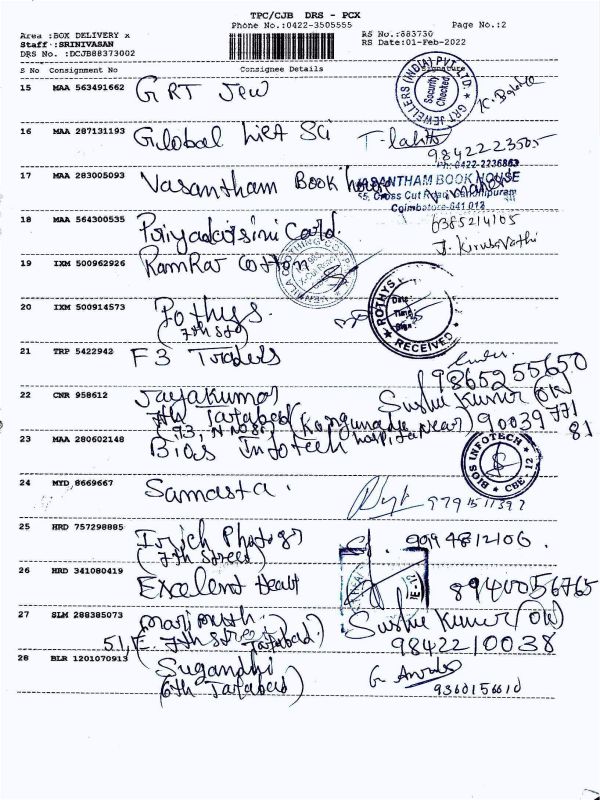 TPC/CJB DRS - PCX
Phone No.:0422-3505555 Page No.:2
Area :BOX DELIVERY x RS No.:883730
Staff :SRINIVASAN RS Date:01-Feb-2022
DRS No. :DCJB88373002
S No Consignment No Consignee Details Signature
15 MAA 563491662 GRT Jew
GRT JEWELLERS (INDIA) PVT. LTD.
Security Checked
16 MAA 287131193 Global Life Sci
9842223505
17 MAA 283005093 Vasantham Book house
Ph: 0422-2236863
VASANTHAM BOOK HOUSE
55, Cross Cut Road, Gandhipuram
Coimbatore-641 012
18 MAA 564300535 Priyadarsini Card.
6385214105
19 IXM 500962926 RamRaj Cotton
20 IXM 500914573 Pothys.
(7th St)
POTHYS
Date:
Time:
Sign:
RECEIVED
21 TRP 5422942 F3 Traders
9865255650
22 CNR 958612 Jayakumar
7th Tatabad (Kongunadu hospital near)
Sushil Kumar (OK)
90039771
81
23 MAA 280602148 Bios Infotech
BIOS INFOTECH
CBE-12
24 MYD 8669667 Samasta.
25 HRD 757298885
(7th Street)
9994812106.
26 HRD 341080419 Excelent Heart
8940056765
27 SLM 288385073
7th Street Tatabad.)
Sushil Kumar (OK)
9842210038
28 BLR 1201070913 Sugandhi
(6th Tatabad)
9360156610